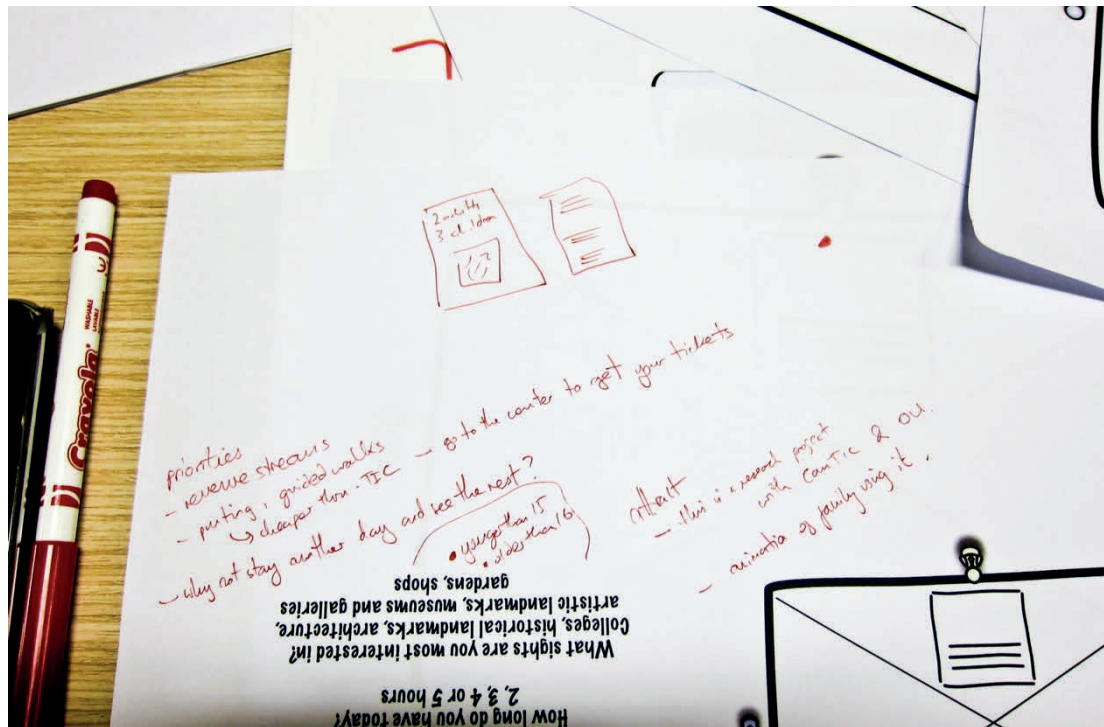 2 adults
3 children
priorities
- revenue streams
- punting, guided walks
↳ cheaper thru TIC - go to the counter to get your tickets
- why not stay another day and see the rest?
• younger than 15
• older than 16
- this is a research project
with CamTIC & OU.
- animation of family using it.
How long do you have today?
2, 3, 4 or 5 hours
What sights are you most interested in?
Colleges, historical landmarks, architecture,
artistic landmarks, museums and galleries
gardens, shops
Crayola
WASHABLE
LAVABLE